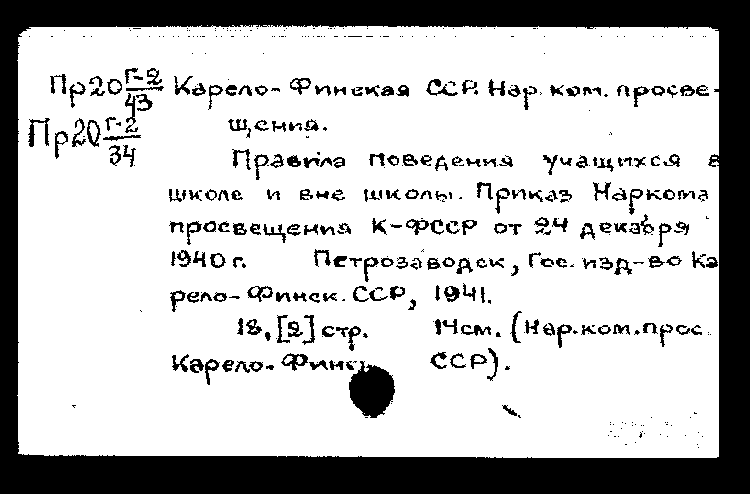 Пр20 Г-2/43 Карело-Финская ССР. Нар. ком. просве-
Пр20 Г-2/34 щения.
Правила поведения учащихся в
школе и вне школы. Приказ Наркома
просвещения К-ФССР от 24 декабря
1940 г. Петрозаводск, Гос. изд-во Ка
рело-Финск. ССР, 1941.
18, [2] стр. 14 см. (Нар. ком. прос.
Карело-Финск ССР).